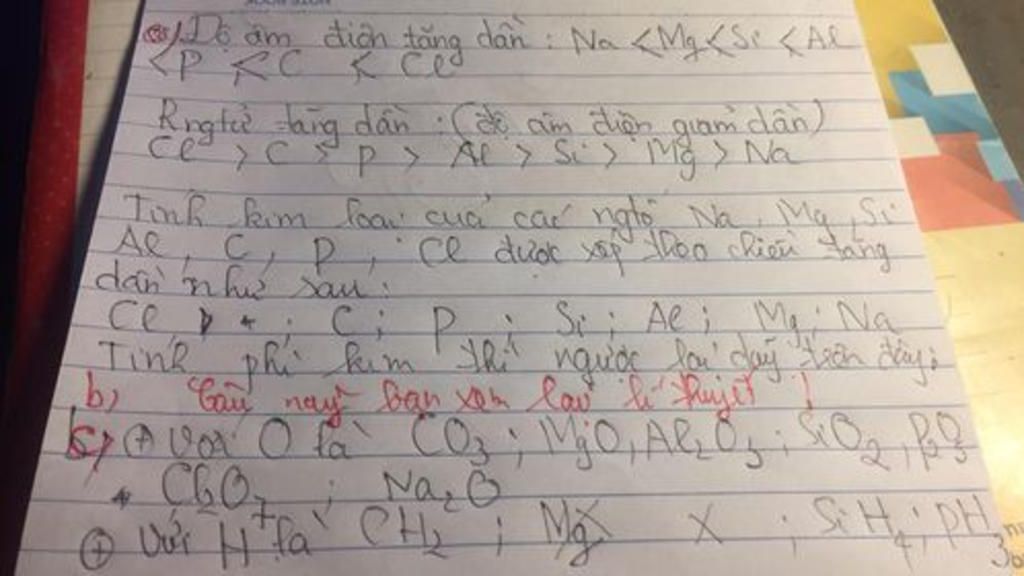 a) Độ âm điện tăng dần : Na < Mg < Si < Al
< P < C < Cl
R ngtử tăng dần : (độ âm điện giảm dần)
Cl > C > P > Al > Si > Mg > Na
Tính kim loại của các ngtố Na, Mg, Si
Al, C, P, Cl được xếp theo chiều tăng
dần như sau:
Cl ; C ; P ; Si ; Al ; Mg ; Na
Tính phi kim thì ngược lại dãy trên đây;
b) Câu này bạn xem lại lí thuyết !
c) + Với O là CO3 ; MgO, Al2O3 ; SiO2, P2O3
Cl2O7 ; Na2O
+ Với H là CH2 ; MgX X ; SiH4 ; PH3